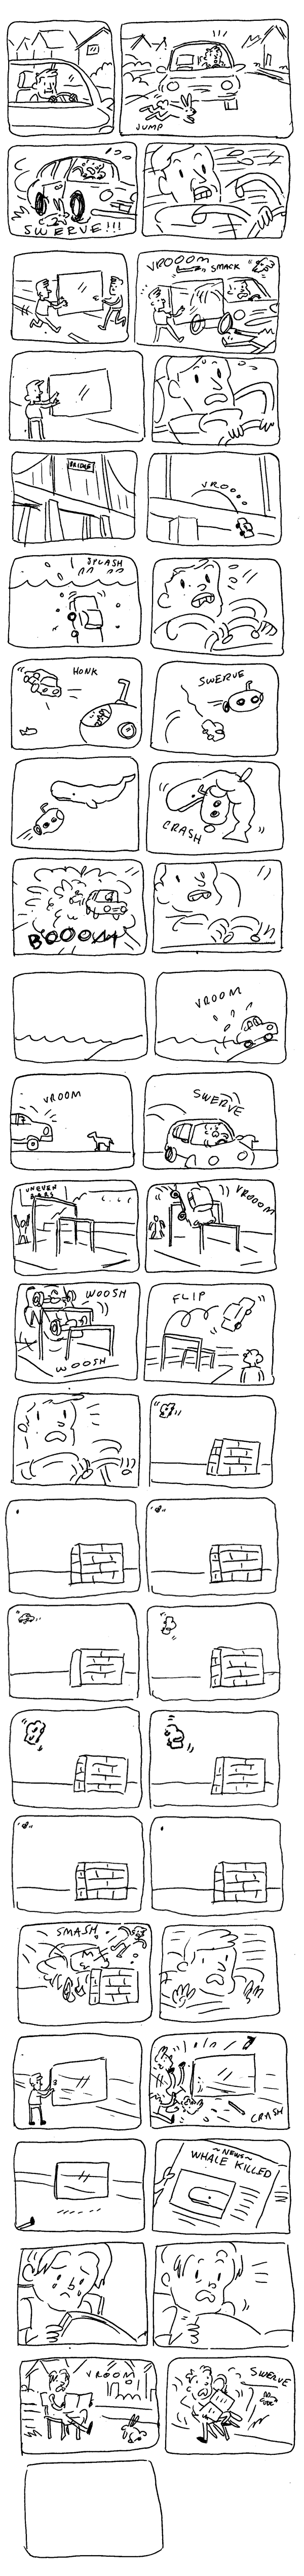 JUMP
SWERVE!!!
VROOOM
SMACK
BRIDGE
VROOO
SPLASH
HONK
SWERVE
CRASH
BOOOM
VROOM
VROOM
SWERVE
UNEVEN
BARS
VROOOM
WOOSH
WOOSH
FLIP
SMASH
CRASH
~NEWS~
WHALE KILLED
VROOM
SWERVE